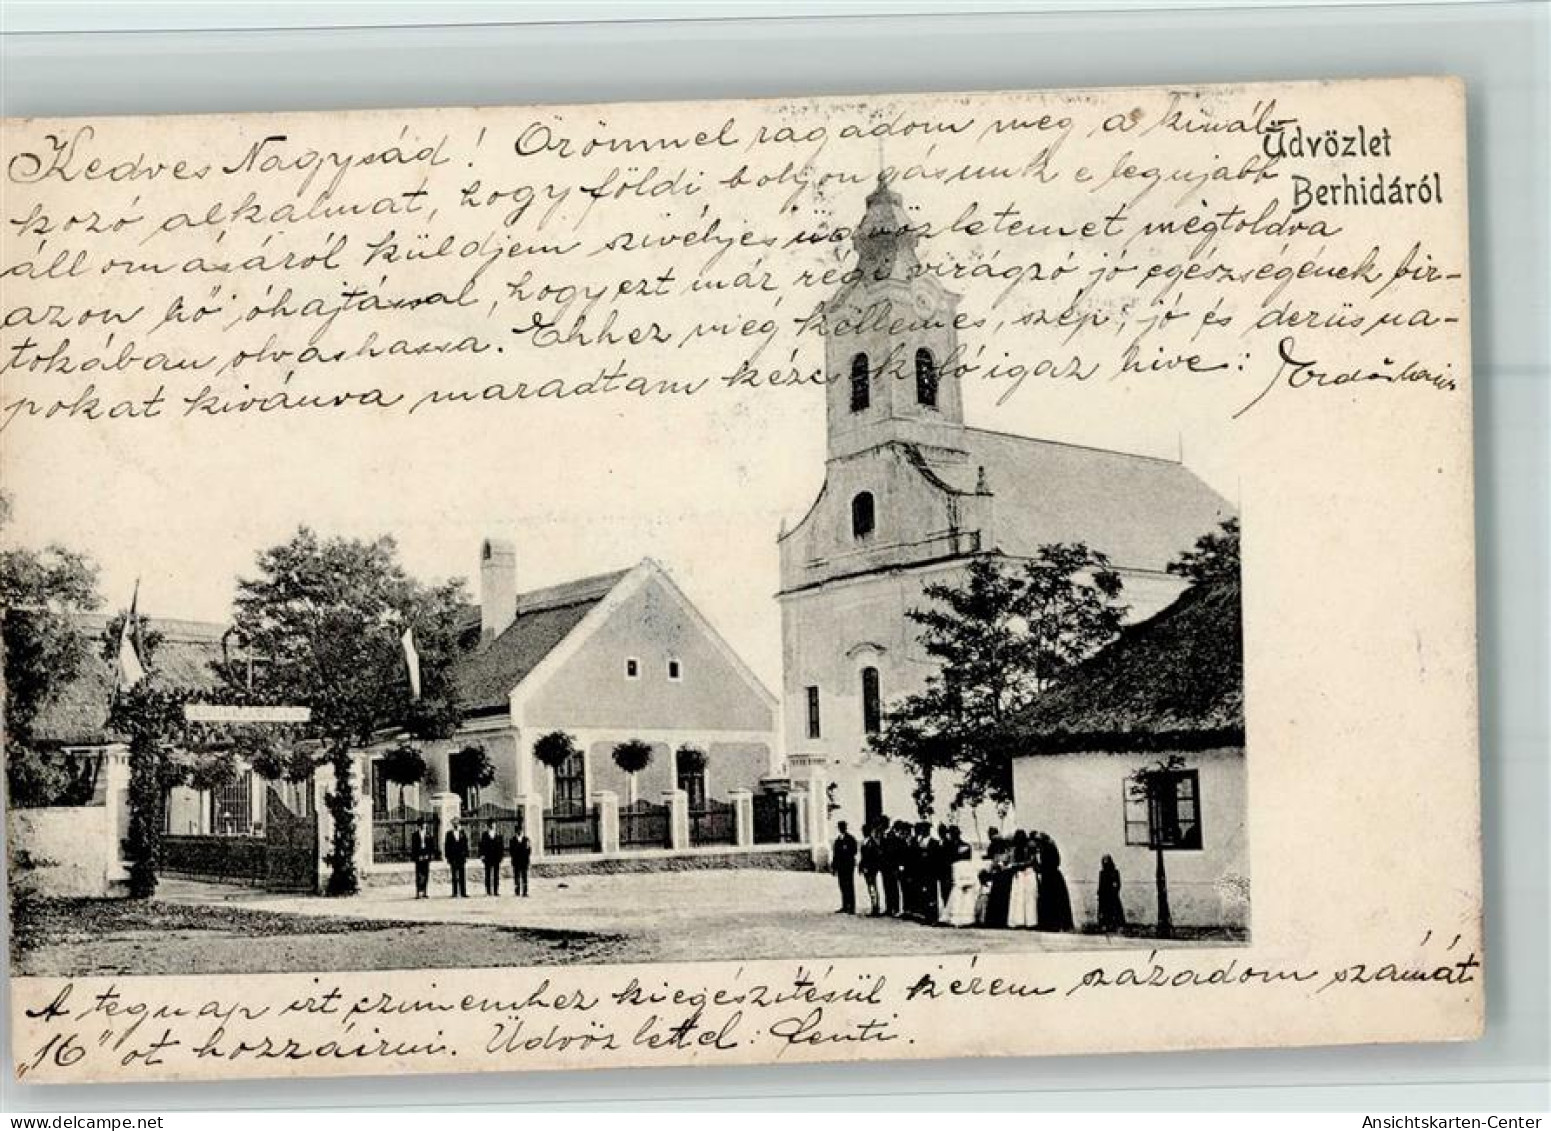 Kedves Nagysád! Örömmel ragadom meg a kinál-
kozó alkalmat, hogy földi bolyongásunk e legujabb
állomásáról küldjem szivélyes üdvözletemet megtoldva
azon hő óhajtással, hogy ezt már régi virágzó jó egészségének bir-
tokában olvashassa. Ehhez még kellemes, szép, jó és derüs na-
pokat kivánva maradtam kézcsókoló igaz hive:
Üdvözlet
Berhidáról
A tegnap irt czimemhez kiegészítésül kérem századom számát
„16" ot hozzáirni. Üdvözlettel: Fenti.
www.delcampe.net
Ansichtskarten-Center